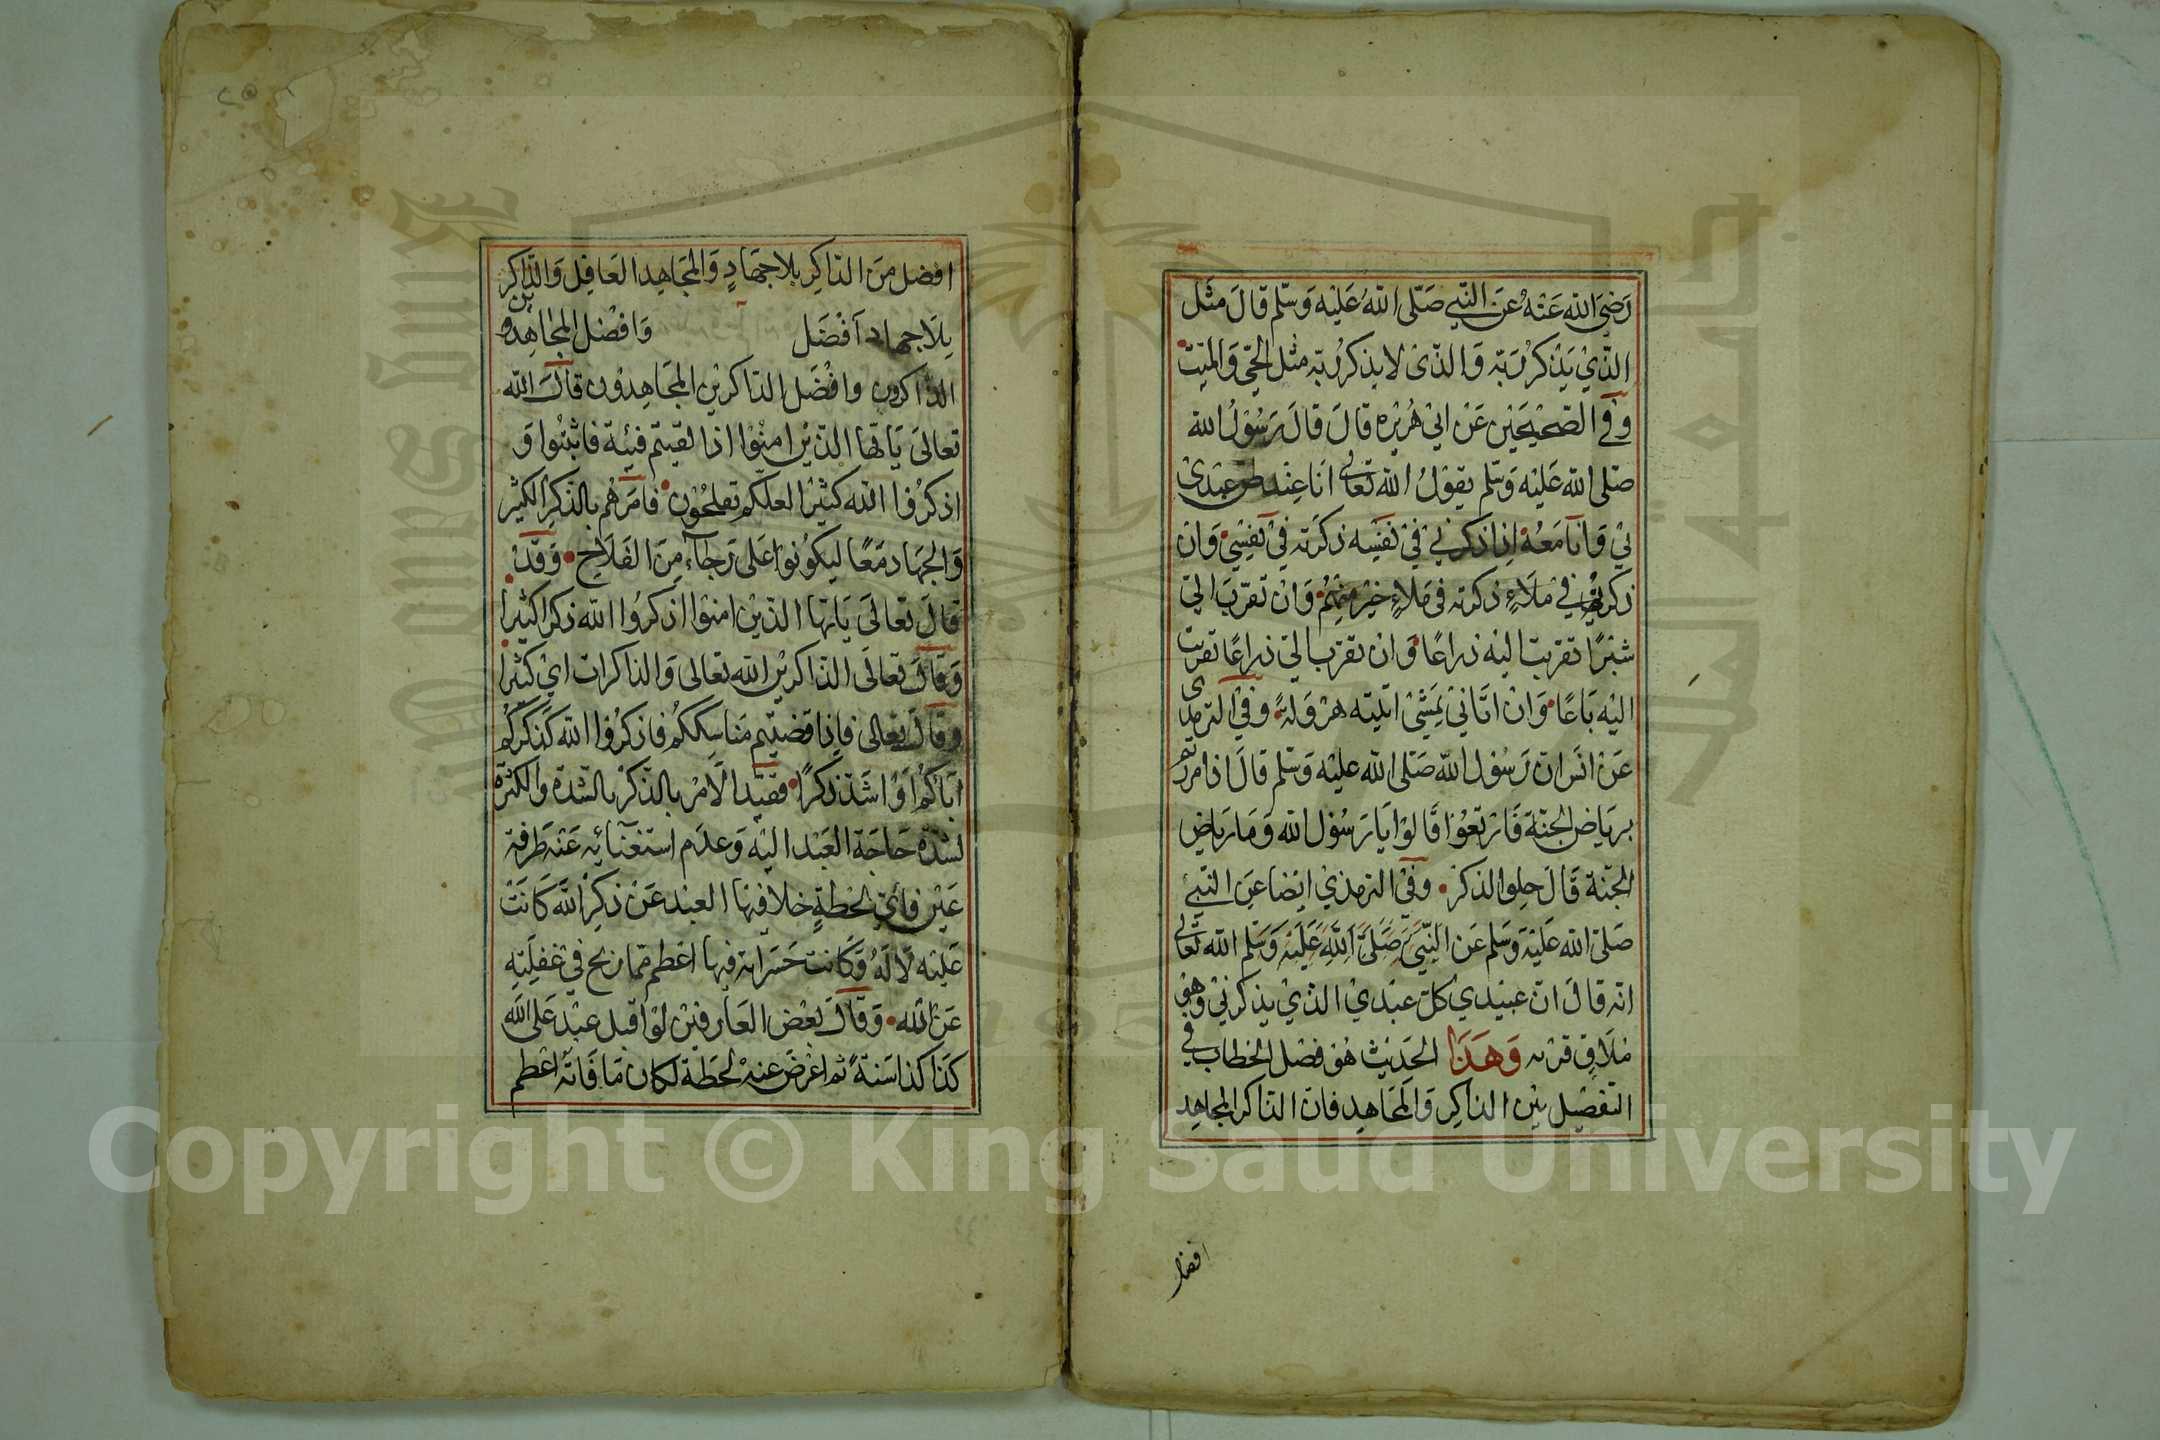 رَضِيَ الله عَنْهُ عَنِ النّبي صَلّى اللهُ عَلَيْه وَسَلّم قالَ مثَل
الذّيْ يَذكرُ رَبّه وَالذى لا يذكرُ ربّه مثل الحَيّ وَالميّت
وَفي الصّحيْحَيْن عَنْ ابيْ هُريْره قالَ قالَ رَسُوْلُ الله
صَلى الله عَليْه وَسَلّم يقوْلُ الله تَعَالى اَنا عِنْد ظن عبْدىْ
بيْ وَانا مَعُهُ اِذا ذكرنيْ فيْ نفسِه ذكرَته فيْ نفسِيْ وَان
ذكرني فيْ مَلاءٍ ذكرته في مَلاءٍ خيْر منهُمْ وَانْ تقرّبَ اليّ
شبْرًا تقربت اليْه ذراعًا وَان تقرّب اليّ ذراعًا تقربت
اليْه بَاعًا وَانْ اتانيْ يَمشىْ اتيته هرْوَلةً وَفيْ الترمذى
عَنْ انَس ان رَسُوْل الله صَلى الله عليْه وَسَلّم قالَ اذا مررتم
برياض الجنّة فَارْتعُوْا قالوْا يَا رَسُوْل الله وَمَا ريَاض
الجنّة قَالَ حِلق الذكرْ وَفيْ الترمذيْ ايْضا عَن النّبيّ
صَلىّ الله عَليْهَ وَسَلم عَن النّبيّ صَلىّ اللهَ عَليْهَ وَسَلم الله تَعَالى
انّه قالَ انّ عبيْديْ كلّ عبْديْ الذّيْ يذكرنيْ وَهوْ
مُلَاقٍ قرْنه وَهَذَا الحَديْث هُوْ فصْل الخطاب في
التفضيْل بيْن الذاكِر وَالمجَاهِد فانّ الذّاكر المجَاهِد
افضل
افضل منَ الذّاكِر بِلا جهَادٍ وَالمجَاهِد الغَافِل وَالذّاكر
بِلَا جهاد اَفْضَل وَافْضل المجَاهِدين
الذّاكرون وافْضَل الذّاكريْن المجَاهِدوْن قالَ الله
تعالىَ يَاايّها الذّيْن امنُوْا اذا لقيتم فيئة فاثبتُوا وَ
اذكرُوا الله كثيْرًا لعلكم تفلحُوْن فامَرهُم بالذكِر الكثيْر
وَالجهَاد مَعًا ليكوُنوْا عَلى رَجآء مِنَ الفَلَاح وَقدْ
قالَ تعالىَ يَاايّها الذّيْن امنوْا اذكرُوا الله ذكرًا كثيرًا
وَقالَ تعالَى الذّاكريْن الله تعالى وَالذاكرات ايْ كثيْرا
وَقالَ تعالى فإِذا قضيْتم مَناسِككُم فاذكرُوا الله كذكركُم
ابَآءكُمْ اَوْ اشَدّ ذكرًا فقيّد الاَمْر بالذّكرْ بالشّدّة وَالكثرَة
لشدّة حَاجَة العَبْد اليْه وَعدَم استغنآئه عَنْه طَرفة
عَيْن فأيّ لحظةٍ خلا فيْهَا العبْد عَنْ ذكرْ الله كَانَتْ
عَليْه لَا لَهُ وَكانت خَسَراته فيها اعْظم ممّا ربح فيْ غفلَتِه
عَنْ الله وَقالَ بعْض العَارفيْن لوْ اقبل عبْد عَلى الله
كذَا كذا سَنةً ثم اعْرضَ عنهْ لحَظة لكان مَا فَاته اعْظم
Copyright © King Saud University